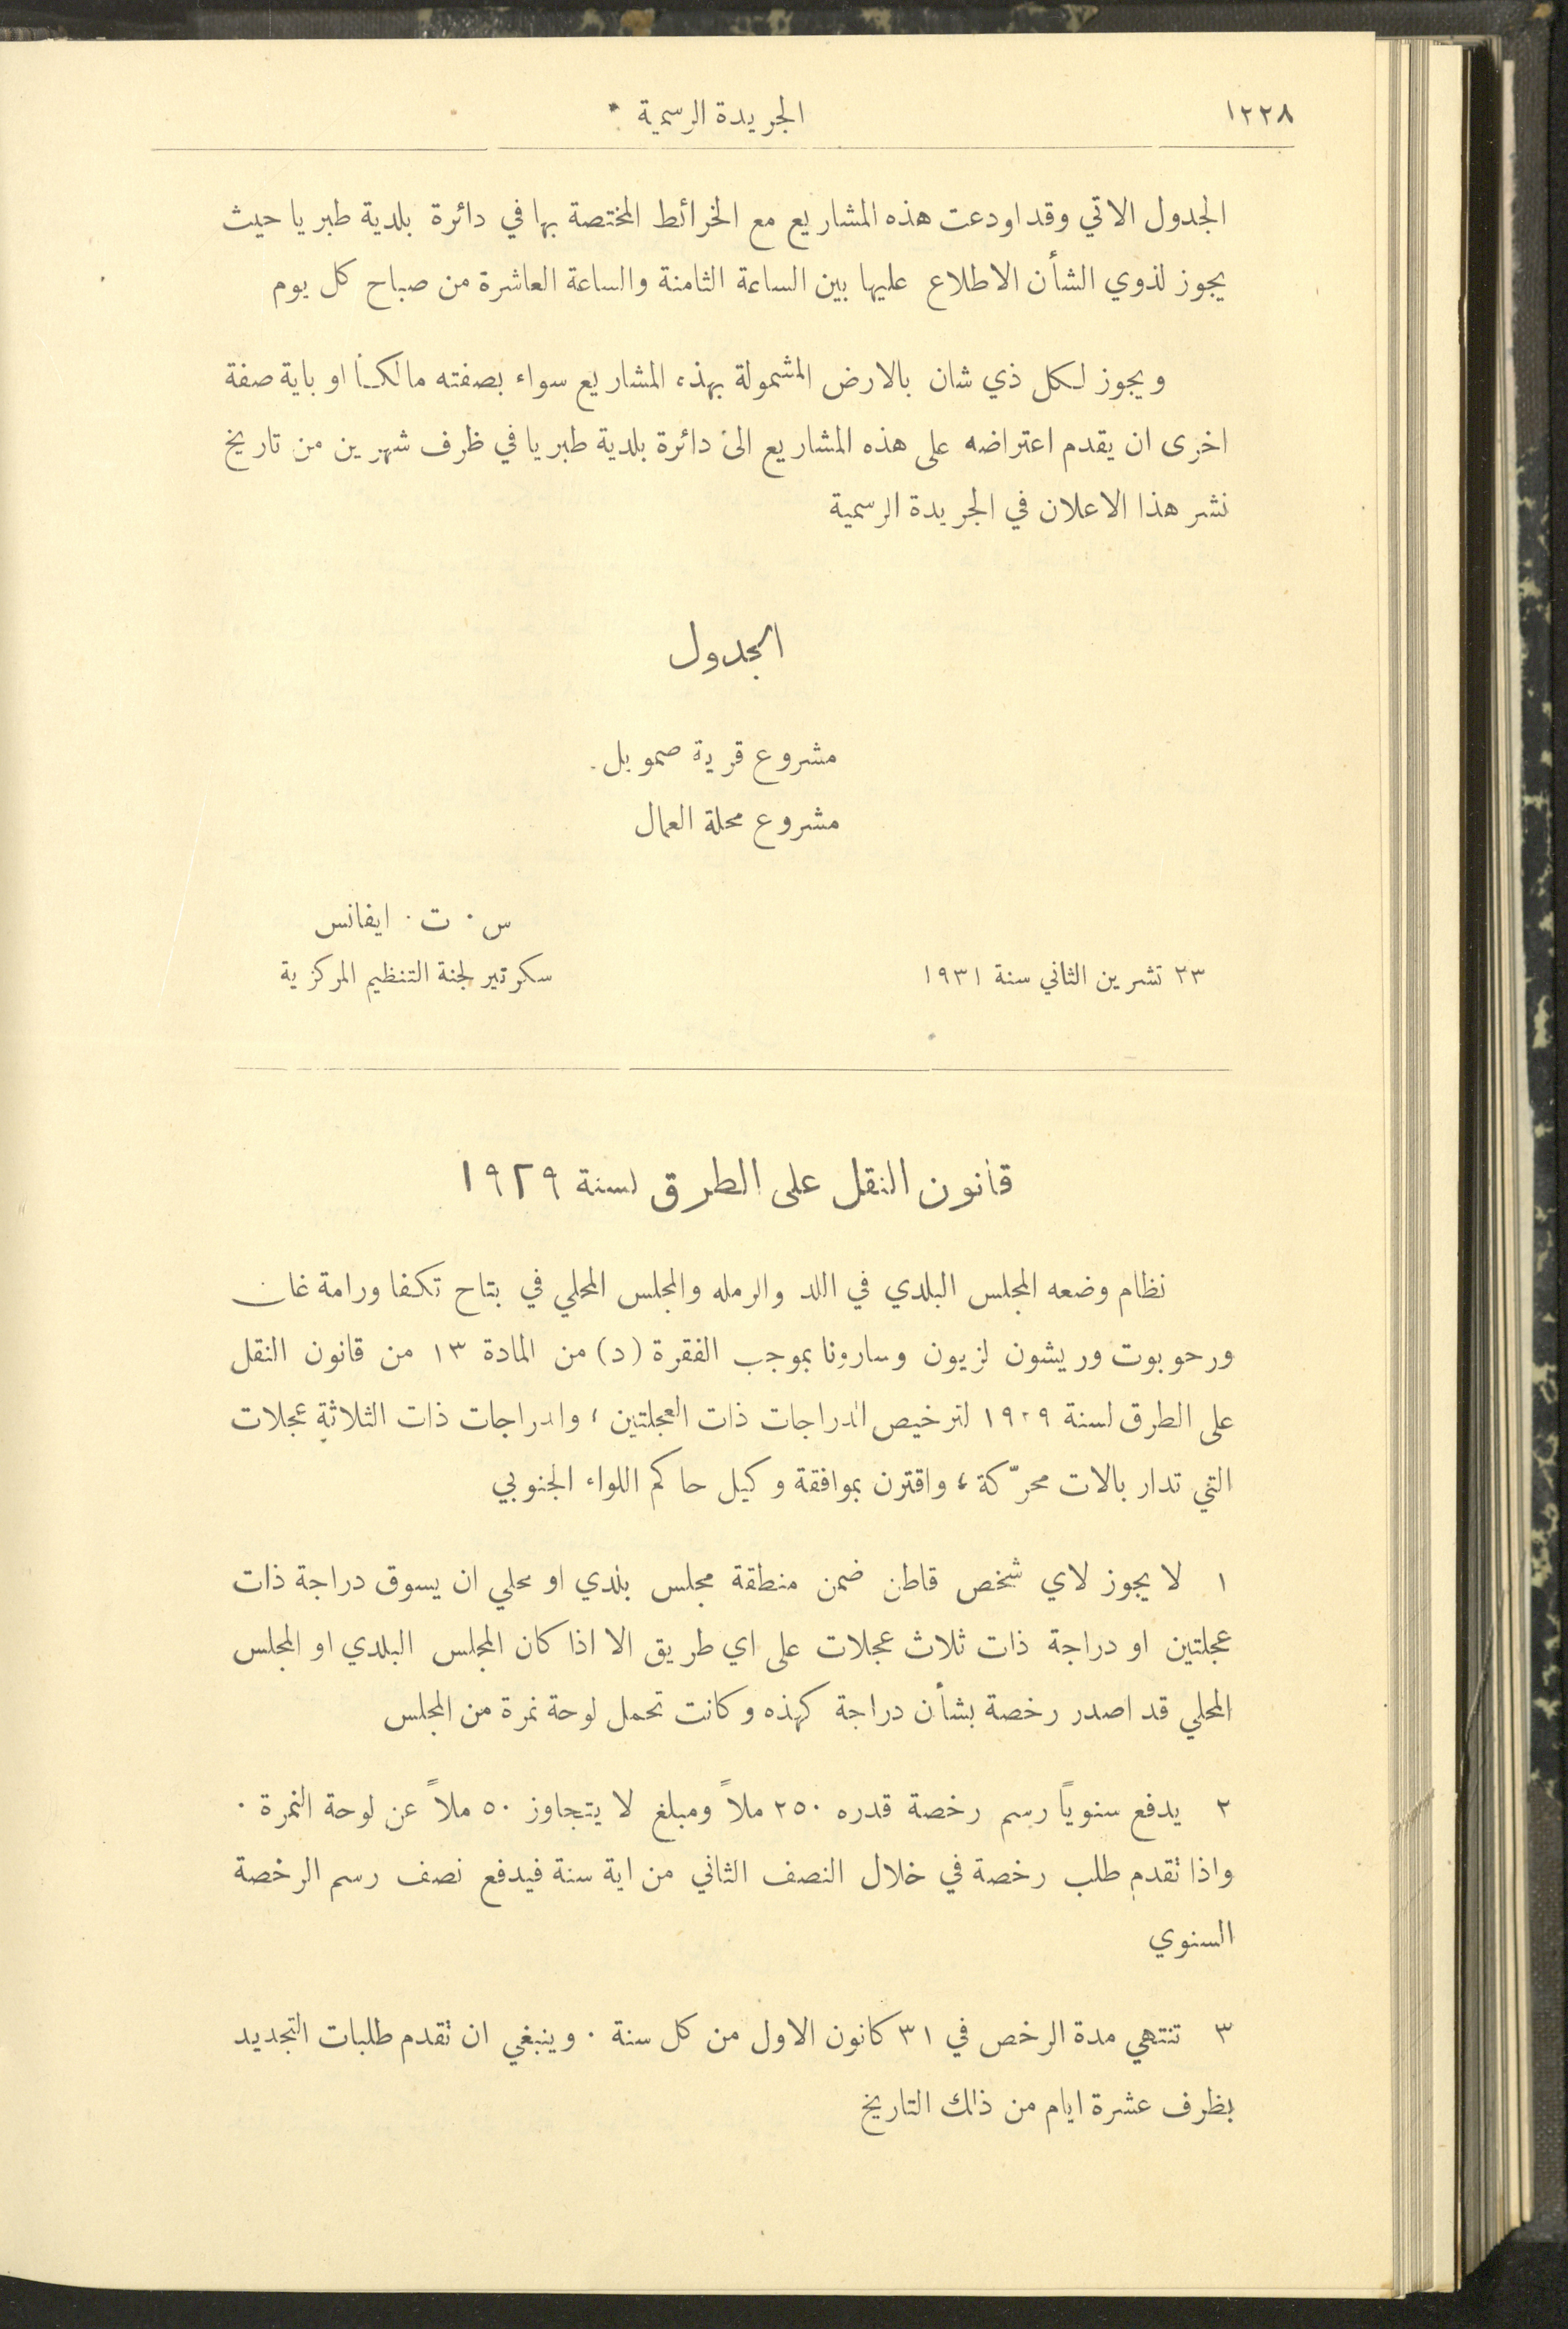 ١٢٢٨
الجريدة الرسمية
الجدول الاتي وقد اودعت هذه المشاريع مع الخرائط المختصة بها في دائرة بلدية طبريا حيث
يجوز لذوي الشأن الاطلاع عليها بين الساعة الثامنة والساعة العاشرة من صباح كل يوم
ويجوز لكل ذي شان بالارض المشمولة بهذه المشاريع سواء بصفته مالكا او باية صفة
اخرى ان يقدم اعتراضه على هذه المشاريع الى دائرة بلدية طبريا في ظرف شهرين من تاريخ
نشر هذا الاعلان في الجريدة الرسمية
الجدول
مشروع قرية صموئيل
مشروع محلة العمال
س. ت. ايفانس
٢٣ تشرين الثاني سنة ١٩٣١ سكرتير لجنة التنظيم المركزية
قانون النقل على الطرق لسنة ١٩٢٩
نظام وضعه المجلس البلدي في اللد والرمله والمجلس المحلي في بتاح تكفا ورامة غان
ورحوبوت وريشون لزيون وسارونا بموجب الفقرة (د) من المادة ١٣ من قانون النقل
على الطرق لسنة ١٩٢٩ لترخيص الدراجات ذات العجلتين، والدراجات ذات الثلاثة عجلات
التي تدار بالات محرّكة، واقترن بموافقة وكيل حاكم اللواء الجنوبي
١ لا يجوز لاي شخص قاطن ضمن منطقة مجلس بلدي او محلي ان يسوق دراجة ذات
عجلتين او دراجة ذات ثلاث عجلات على اي طريق الا اذا كان المجلس البلدي او المجلس
المحلي قد اصدر رخصة بشأن دراجة كهذه وكانت تحمل لوحة نمرة من المجلس
٢ يدفع سنوياً رسم رخصة قدره ٢٥٠ ملاً ومبلغ لا يتجاوز ٥٠ ملاً عن لوحة النمرة.
واذا تقدم طلب رخصة في خلال النصف الثاني من اية سنة فيدفع نصف رسم الرخصة
السنوي
٣ تنتهي مدة الرخص في ٣١ كانون الاول من كل سنة. وينبغي ان تقدم طلبات التجديد
بظرف عشرة ايام من ذلك التاريخ